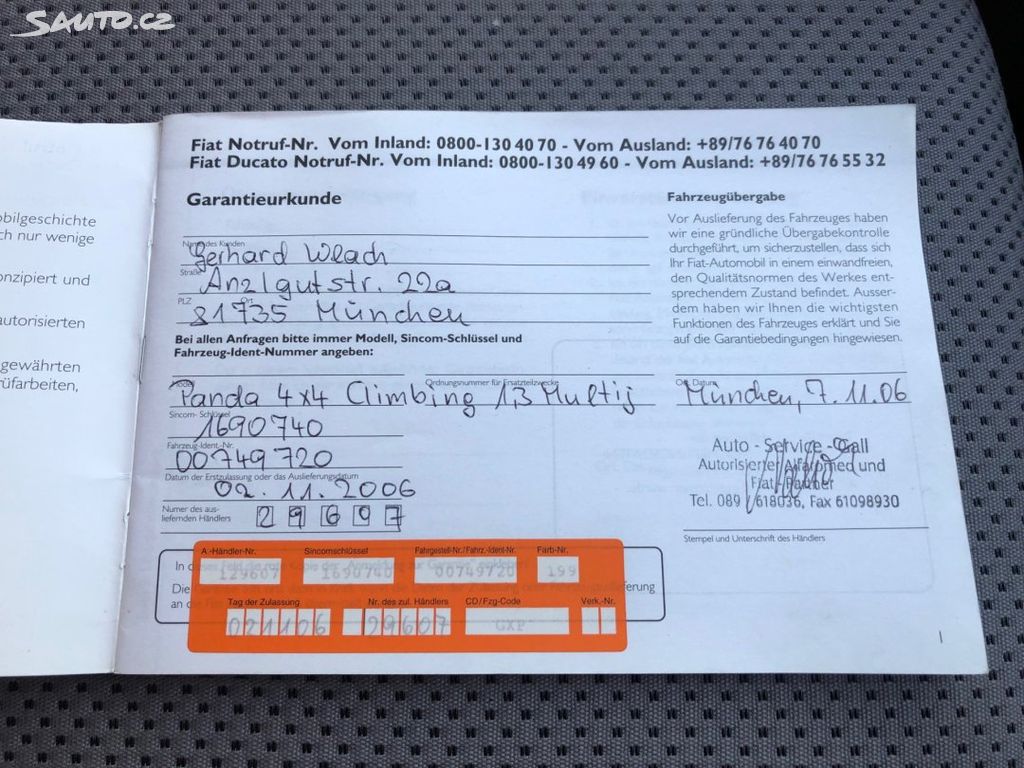 SAUTO.CZ
obilgeschichte
ch nur wenige
onzipiert und
autorisierten
gewährten
rüfarbeiten,
Fiat Notruf-Nr. Vom Inland: 0800-130 40 70 - Vom Ausland: +89/76 76 40 70
Fiat Ducato Notruf-Nr. Vom Inland: 0800-130 49 60 - Vom Ausland: +89/76 76 55 32
Garantieurkunde
Name des Kunden
Gerhard Wlach
Straße
Anzlgutstr. 22a
PLZ Ort
81735 München
Bei allen Anfragen bitte immer Modell, Sincom-Schlüssel und
Fahrzeug-Ident-Nummer angeben:
Modell Ordnungsnummer für Ersatzteilzwecke
Panda 4x4 Climbing 1,3 Multij
Sincom-Schlüssel
1690740
Fahrzeug-Ident.-Nr.
00749720
Datum der Erstzulassung oder das Auslieferungsdatum
02.11.2006
Numer des aus-
liefernden Händlers
29697
Fahrzeugübergabe
Vor Auslieferung des Fahrzeuges haben
wir eine gründliche Übergabekontrolle
durchgeführt, um sicherzustellen, dass sich
Ihr Fiat-Automobil in einem einwandfreien,
den Qualitätsnormen des Werkes ent-
sprechendem Zustand befindet. Ausser-
dem haben wir Ihnen die wichtigsten
Funktionen des Fahrzeuges erklärt und Sie
auf die Garantiebedingungen hingewiesen.
Ort, Datum
München, 7.11.06
Auto - Service - Gall
Autorisierter Alfaromeo und
Fiat - Partner
Tel. 089 / 618036, Fax 61098930
Stempel und Unterschrift des Händlers
In dieses Feld die
Die
an die
erung
A.-Händler-Nr. Sincomschlüssel Fahrgestell-Nr./Fahrz.-Ident-Nr. Farb-Nr.
129607 1690740 00749720 199
Tag der Zulassung Nr. des zul. Händlers CD/Fzg-Code Verk.-Nr.
021106 29607 GXP
1